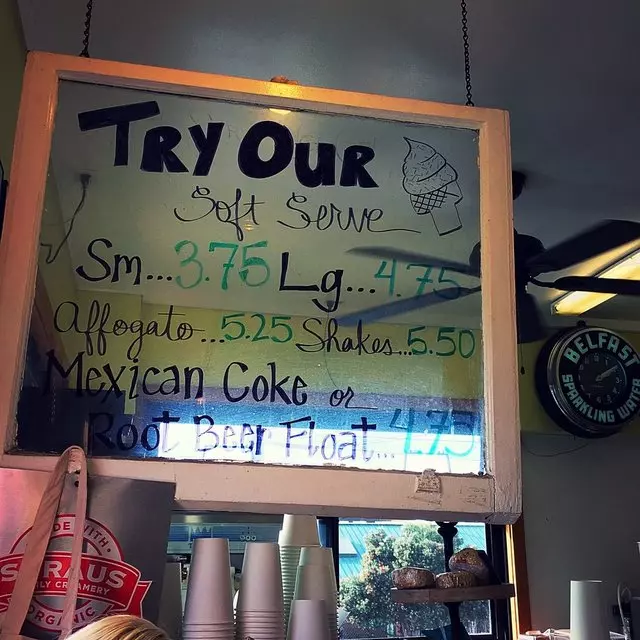 TRY OUR
Soft Serve
Sm...3.75 Lg...4.75
Affogato...5.25 Shakes...5.50
Mexican Coke or
Root Beer Float...4.75
BELFAST
SPARKLING WATER
MADE WITH
STRAUS
FAMILY CREAMERY
ORGANIC